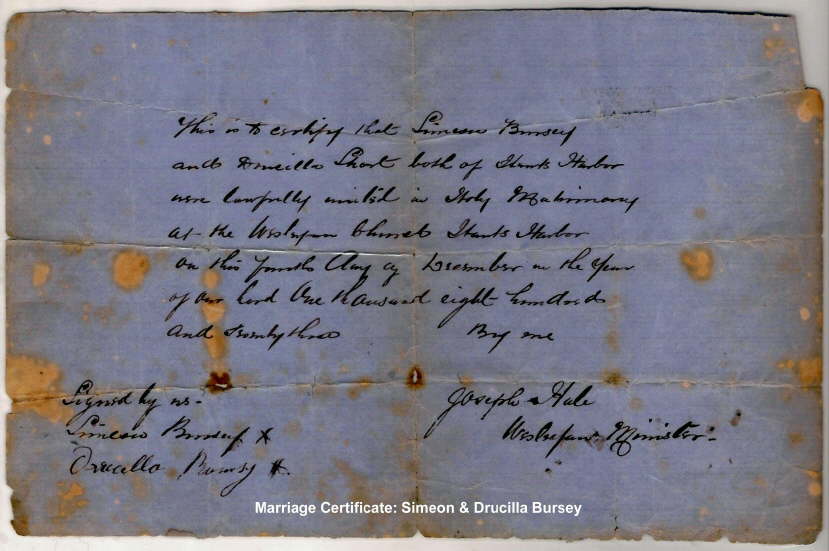 This is to certify that Simeon Bursey
and Drucilla Short both of Hants Harbor
were lawfully united in Holy Matrimony
at the Wesleyan Church Hants Harbor
on this fourth Day of December in the Year
of our Lord One thousand eight hundred
and Seventy three By me
Signed by us - Joseph Hale
Simeon Bursey X Wesleyan Minister -
Drucilla Bursey X.
Marriage Certificate: Simeon & Drucilla Bursey